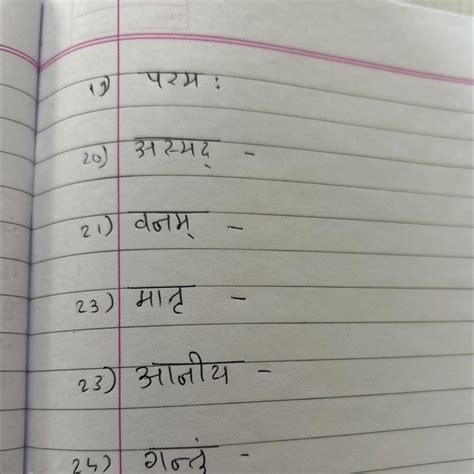 19) परम :
20) अस्मद् -
21) वनम् -
23) मातृ -
23) आनीय -
24) गन्तुं -